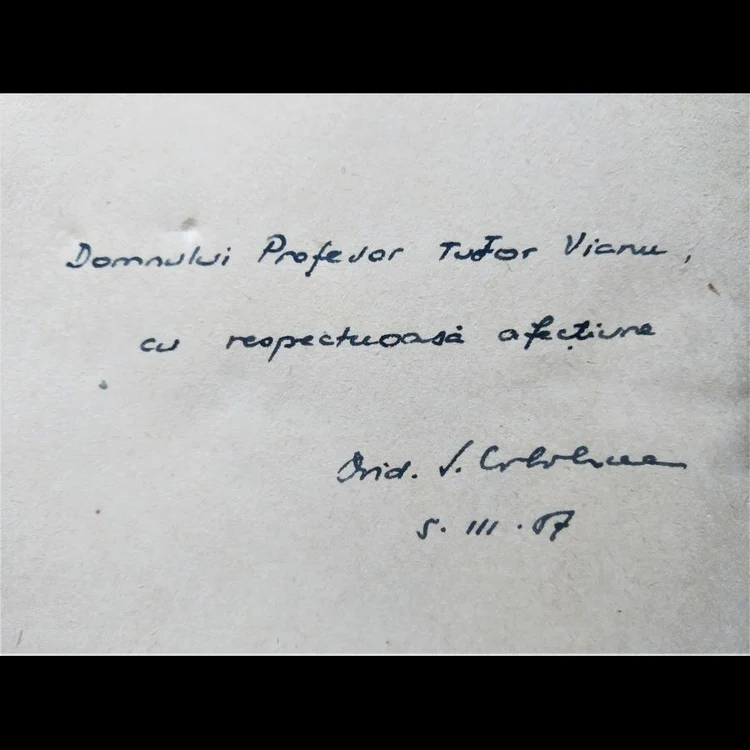 Domnului Profesor Tudor Vianu,
cu respectuoasă afecțiune
Ovid. S. Crohmălniceanu
5. III. 57